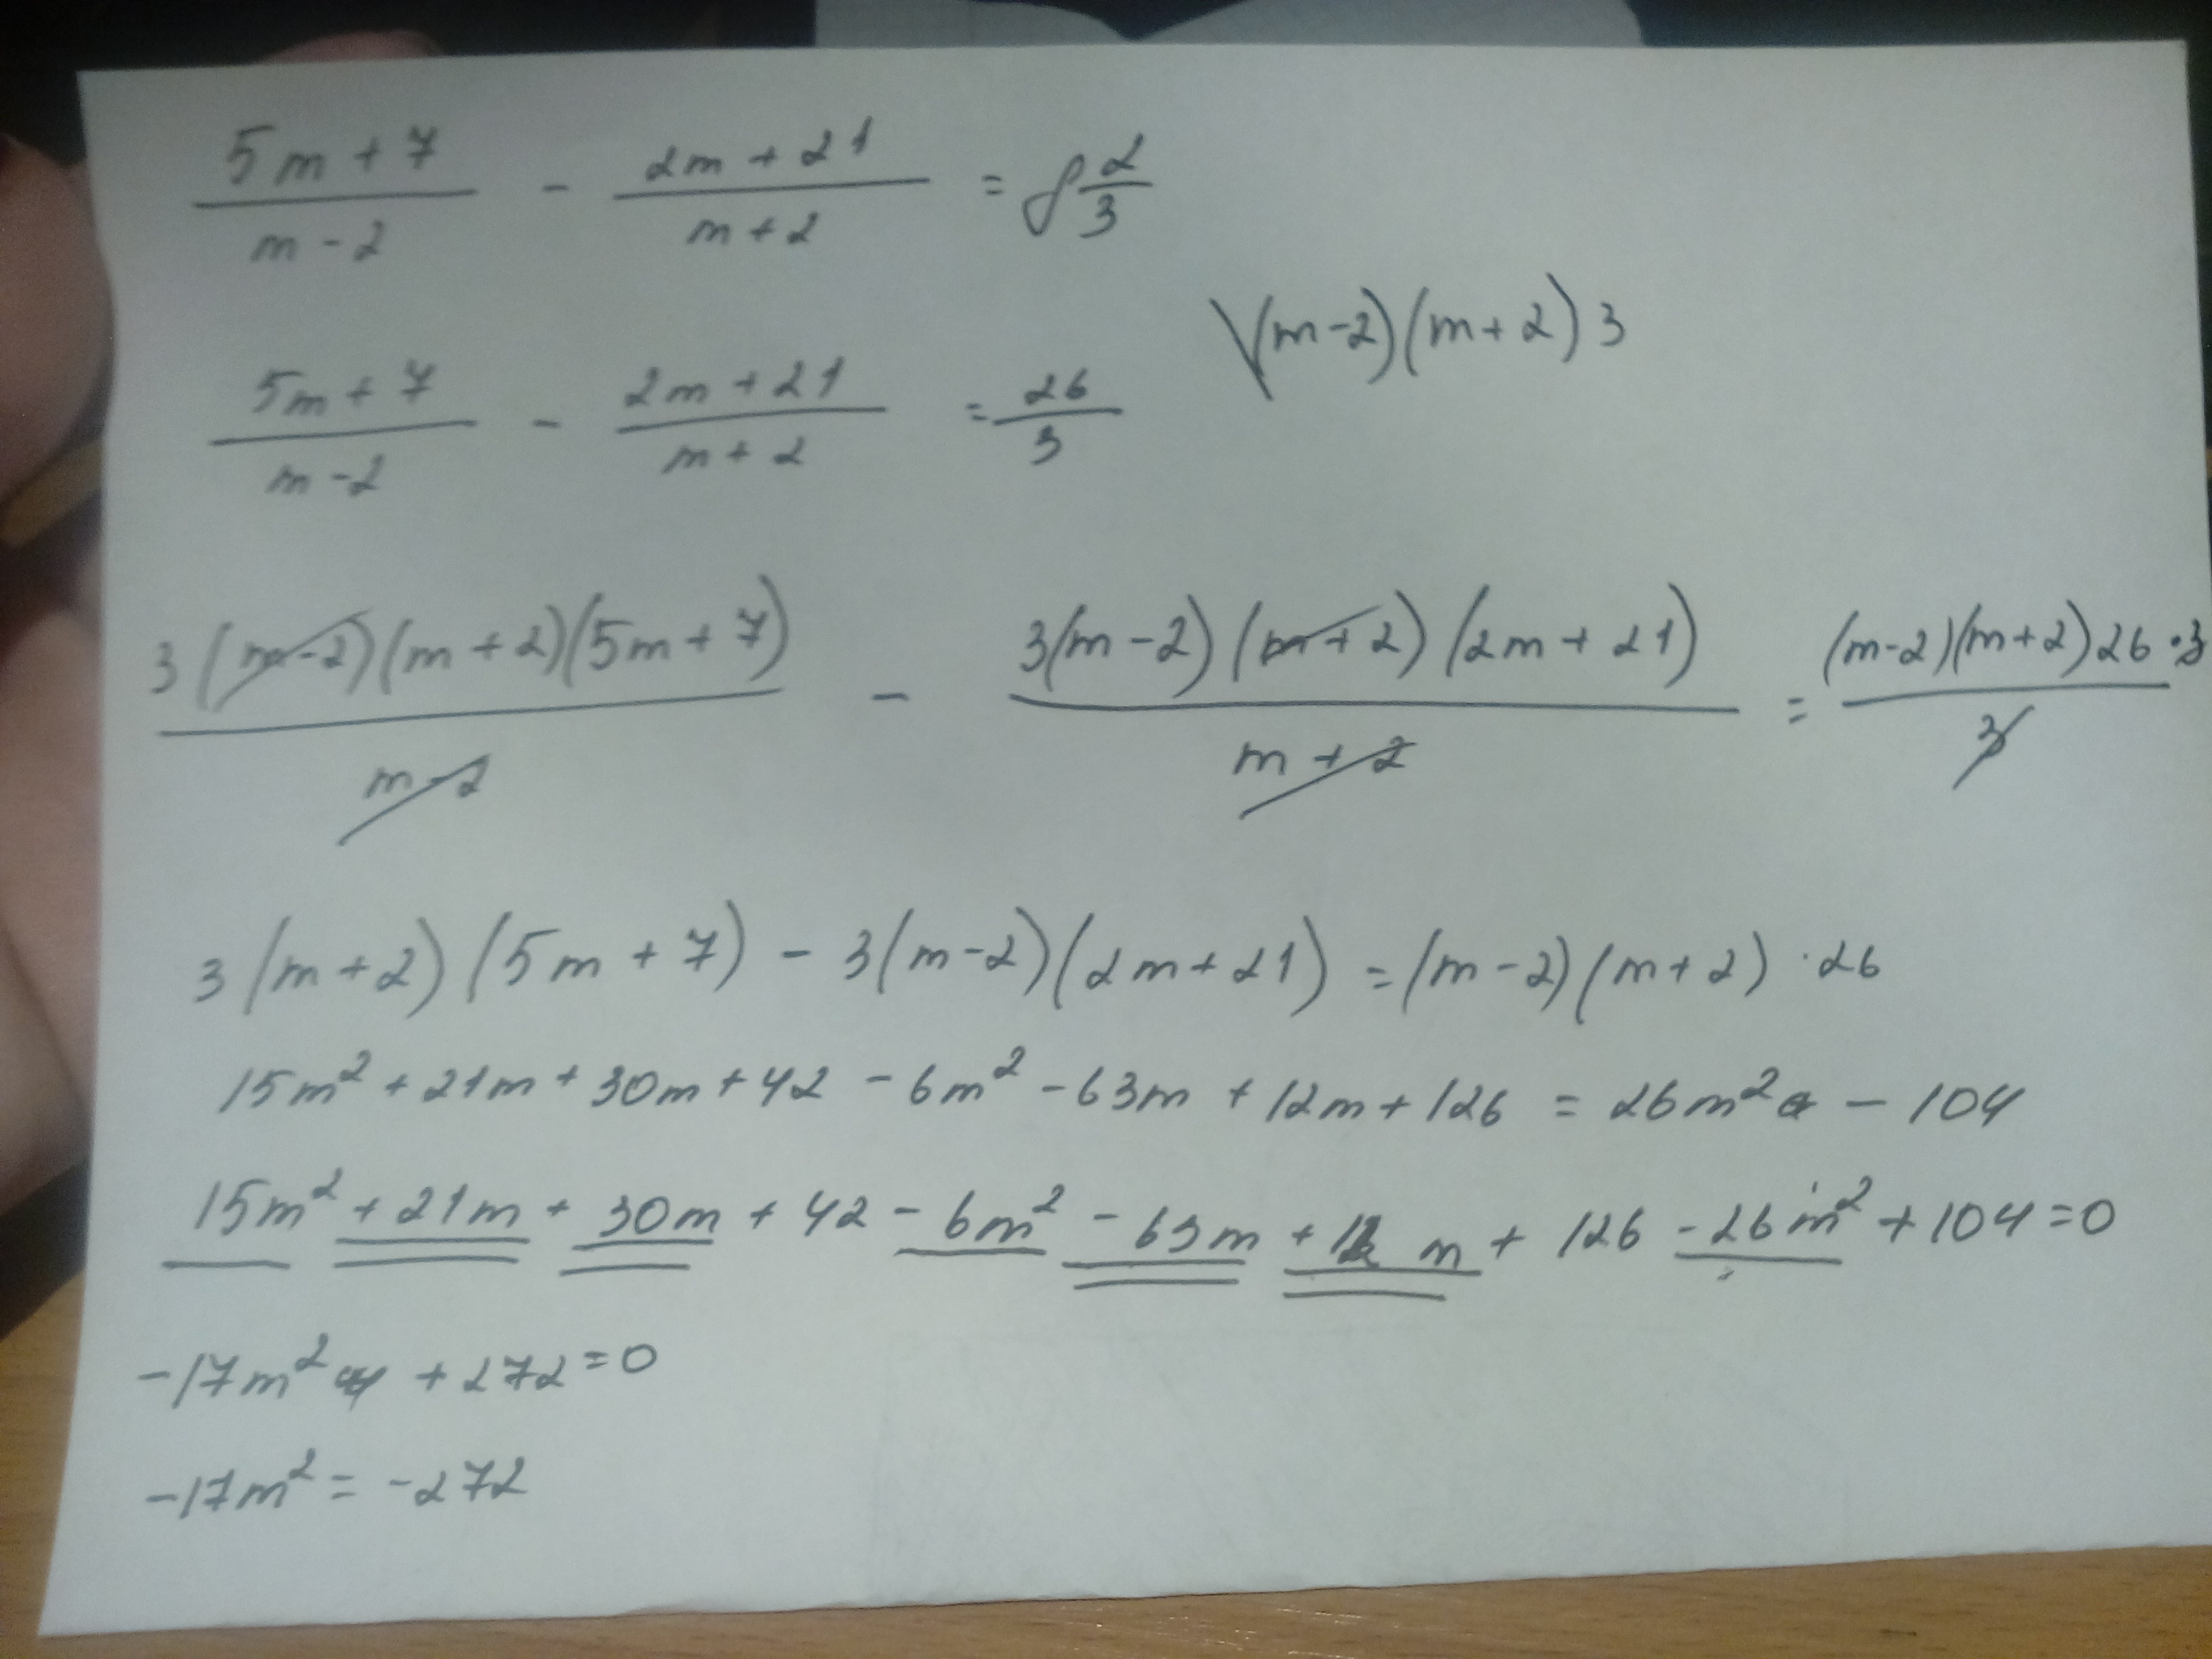 (5m + 7)/(m - 2) - (2m + 21)/(m + 2) = 8 2/3
\(m-2)(m+2)3
(5m + 7)/(m - 2) - (2m + 21)/(m + 2) = 26/3
3(m-2)(m+2)(5m+7)/(m-2) - 3(m-2)(m+2)(2m+21)/(m+2) = (m-2)(m+2)26·3/3
3(m+2)(5m+7) - 3(m-2)(2m+21) = (m-2)(m+2)·26
15m² + 21m + 30m + 42 - 6m² - 63m + 12m + 126 = 26m² - 104
15m² + 21m + 30m + 42 - 6m² - 63m + 12m + 126 - 26m² + 104 = 0
-17m² + 272 = 0
-17m² = -272